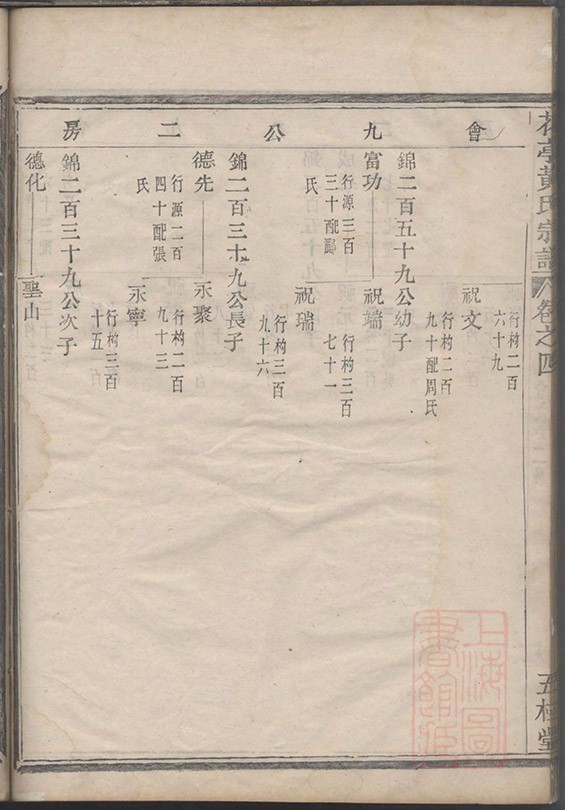 黃氏宗譜
卷之四
五桂堂
會九公二房
行枃二百
六十九
祝文
行枃二百
九十配周氏
錦二百五十九公幼子
富功
行源三百
三十配鄒
氏
祝端
行枃三百
七十一
祝瑞
行枃三百
九十六
錦二百三十九公長子
德先
行源二百
四十配張
氏
永聚
行枃二百
九十三
永寧
行枃三百
十五
錦二百三十九公次子
德化
聖山
上海圖
書館藏